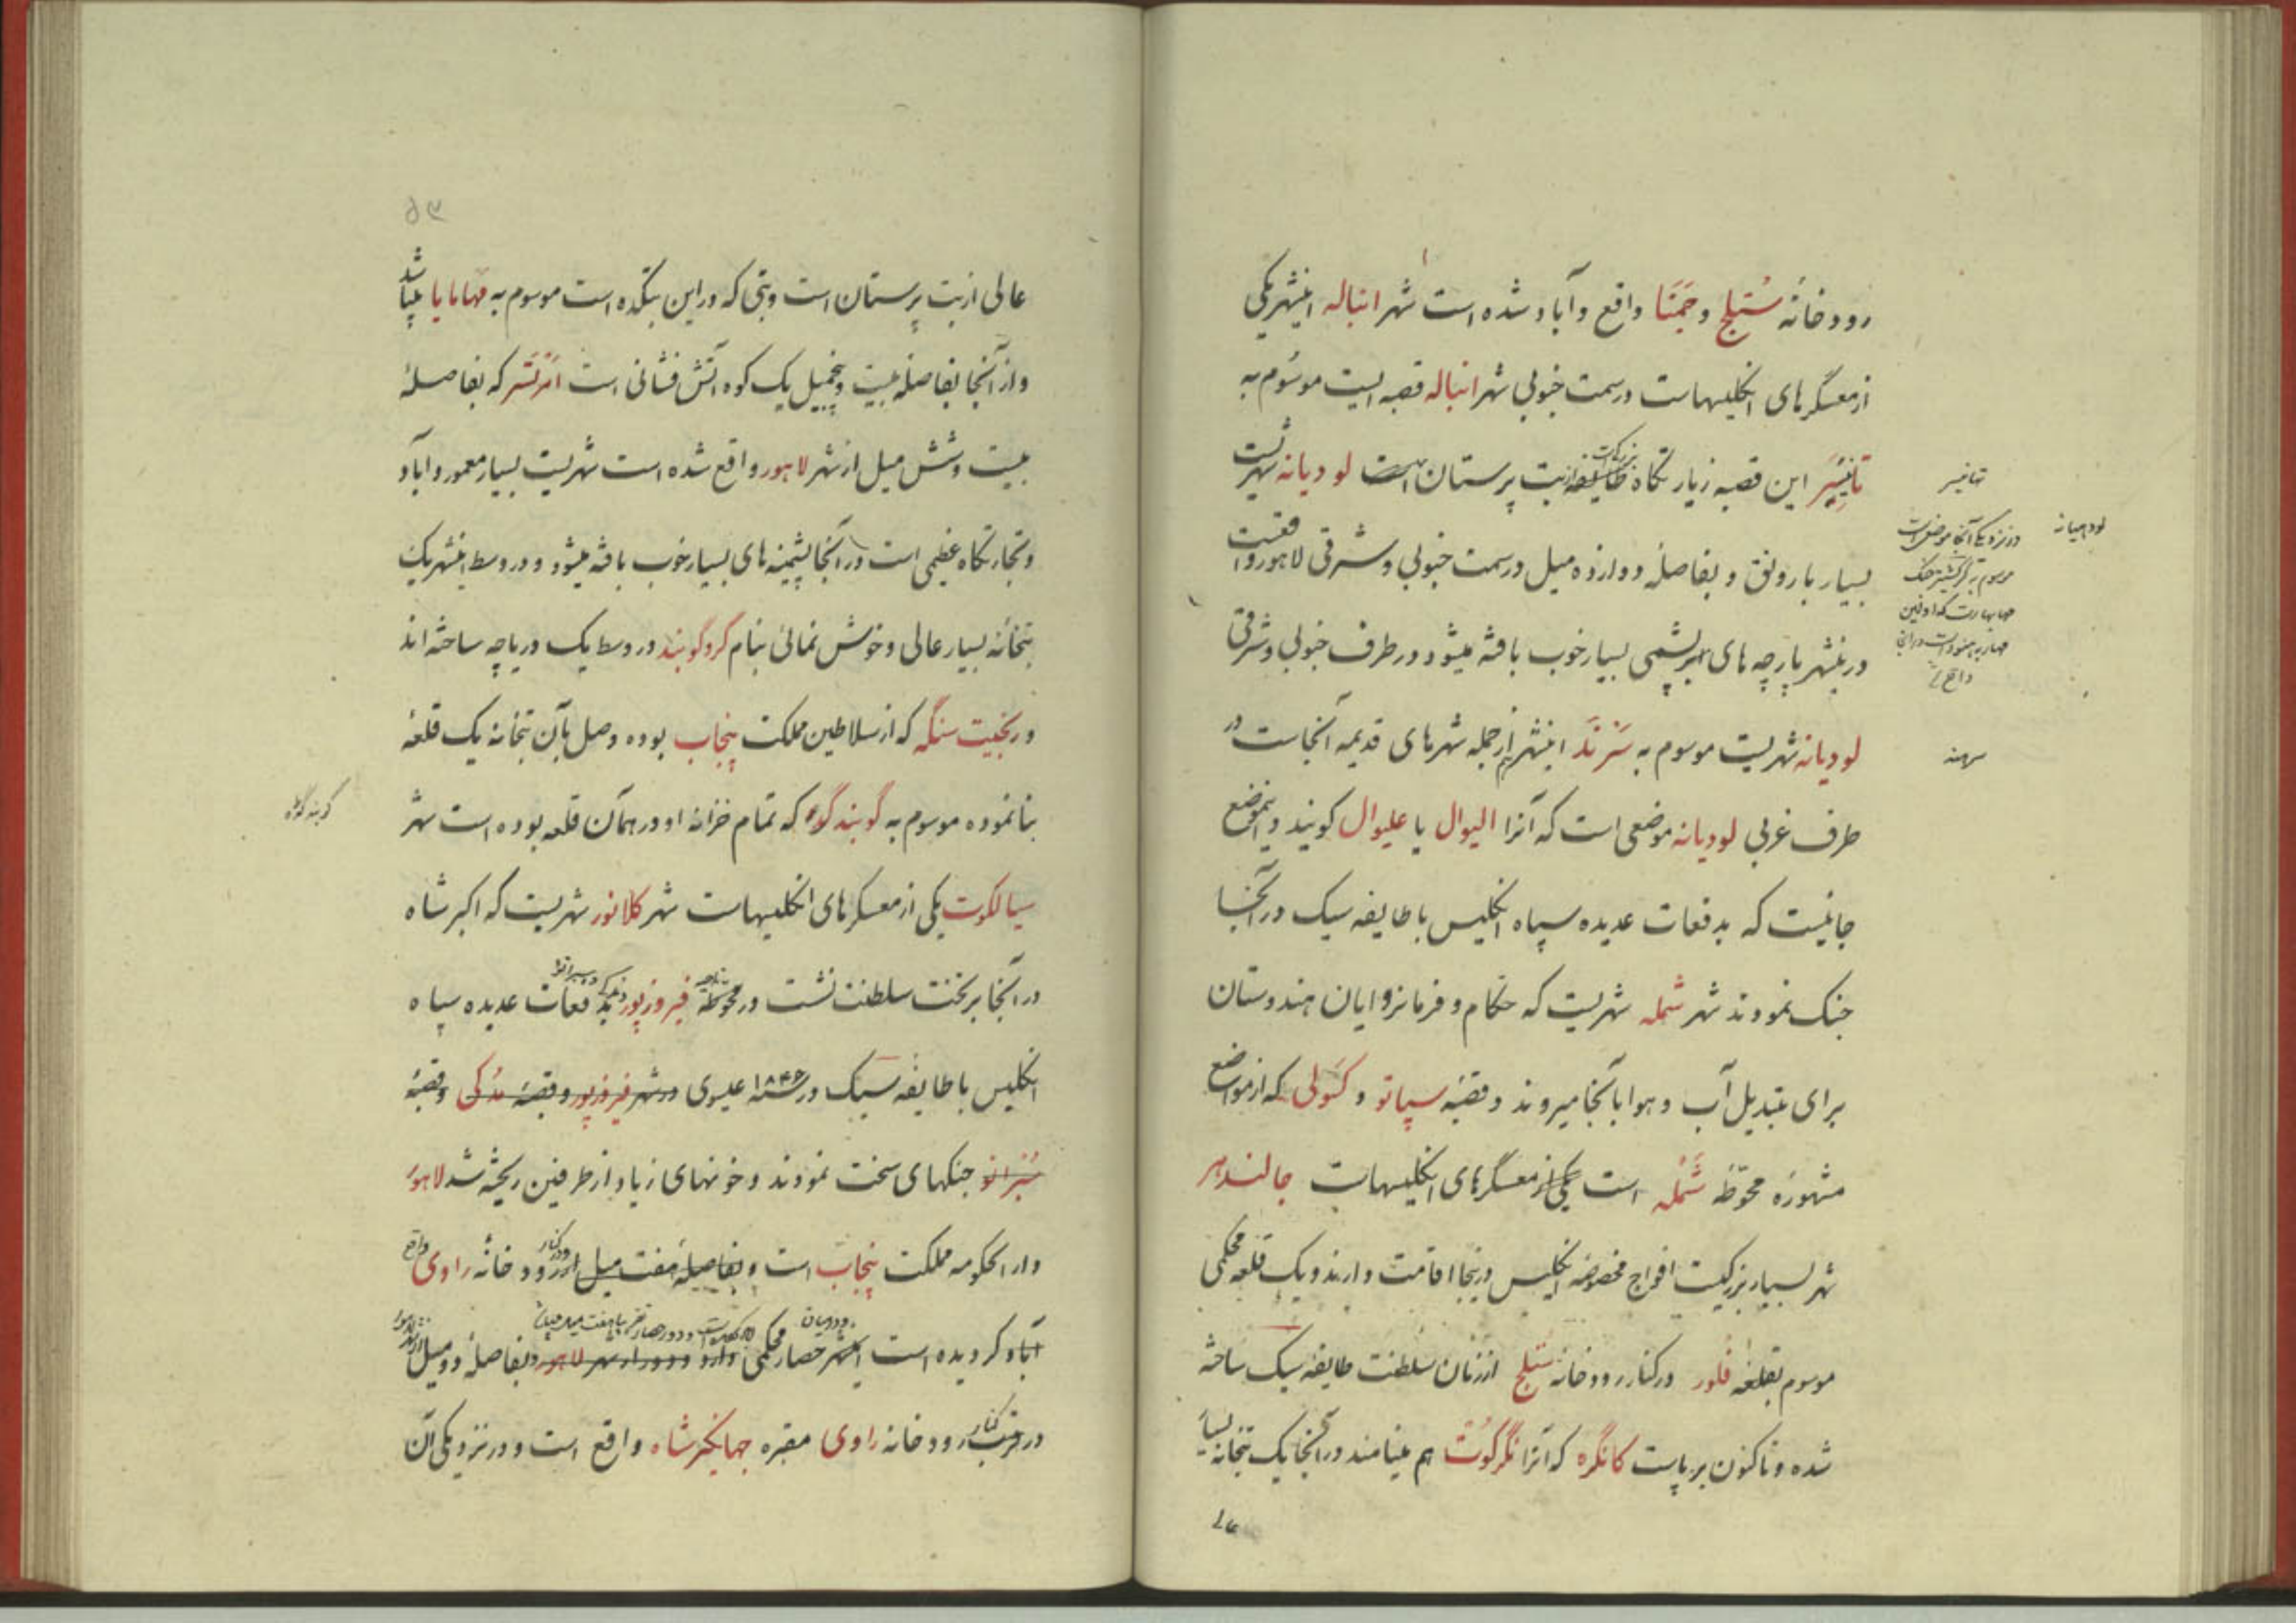 رودخانهٔ سُتلج و جَمَنَا واقع و آباد شده است شهر انباله اینشهر یکی
از معسگرهای انگلیسهاست در سمت جنوبی شهر انباله قصبه ایست موسوم به
تانیسَر این قصبه زیارتگاه بزرگ بت پرستان است لودیانه شهریست
بسیار با رونق و بفاصلهٔ دوازده میل در سمت جنوبی و شرقی لاهور واقعست
درینشهر پارچه های ابریشمی بسیار خوب بافته میشود در طرف جنوبی و شرقی
لودیانه شهریست موسوم به سَرْنَد اینشهر از جمله شهرهای قدیمه آنجاست در
طرف غربی لودیانه موضعی است که آنرا الیوال یا علیوال گویند و اینموضع
جائیست که بدفعات عدیده سپاه انگلیس با طایفه سیک در آنجا
جنگ نمودند شهر شمله شهریست که حکام و فرمانروایان هندوستان
برای تبدیل آب و هوا بآنجا میروند و قصبهٔ سپاتو و کسَولی که از مواضع
مشهورهٔ محوّطهٔ شَمْله است یکی از معسگرهای انگلیسهاست جالندهر
شهر بسیار بزرگیست افواج مخصوصهٔ انگلیس در ینجا اقامت دارند و یک قلعه محکمی
موسوم بقلعهٔ فلور در کنار رودخانه ستلج از زمان سلطنت طایفهٔ سیک ساخته
شده و تاکنون برپاست کانگره که آنرا نگرکوت هم مینامند در آنجا یک بتخانه بسیار
تهانیسر
لودهیانه
در نزدیکی آنجا موضعی است
موسوم به کرکشیتر جنگ
مهابهارت که اولین
محاربه هنود است در آنجا
واقع
سهند
۵۳
عالی از بت پرستان است و بتی که در این بتکده است موسوم به مَهامایا میباشد
و از آنجا بفاصلهٔ بیست و پنجمیل یک کوه آتش فشانی است امْرتسَر که بفاصلهٔ
بیست و شش میل از شهر لاهور واقع شده است شهریست بسیار معمور و آباد
و تجارتگاه عظیمی است در آنجا پشمینه های بسیار خوب بافته میشود و در وسط اینشهر یک
بتخانهٔ بسیار عالی و خوش نمائی بنام گرو گوبند در وسط یک دریاچه ساخته اند
و رنجیت سنگه که از سلاطین مملکت پنجاب بوده وصل بآن بتخانه یک قلعهٔ
بنا نموده موسوم به گوبند گره که تمام خزانه او در همان قلعه بوده است شهر
سیالکوت یکی از معسکرهای انگلیسهاست شهر کلانور شهریست که اکبر شاه
در آنجا بر تخت سلطنت نشست در محوطهٔ فیروزپور بدفعات عدیده سپاه
انگلیس با طایفه سیک در سنه ۱۸۴۶ عیسوی در شهر فیروزپور و قصبهٔ مدکی و قصبهٔ
سُبْرانو جنگهای سخت نمودند و خونهای زیاد از طرفین ریخته شد لاهور
دار الحکومه مملکت پنجاب است و بفاصیلهٔ هفت میل از رودخانهٔ راوی واقع
آباد گردیده است اینشهر حصار محکمی دارد و دور از شهر لاهور و بفاصلهٔ دو میل از شهر لاهور
در کنار رودخانه راوی مقبره جهانگیر شاه واقع است و در نزدیکی آن